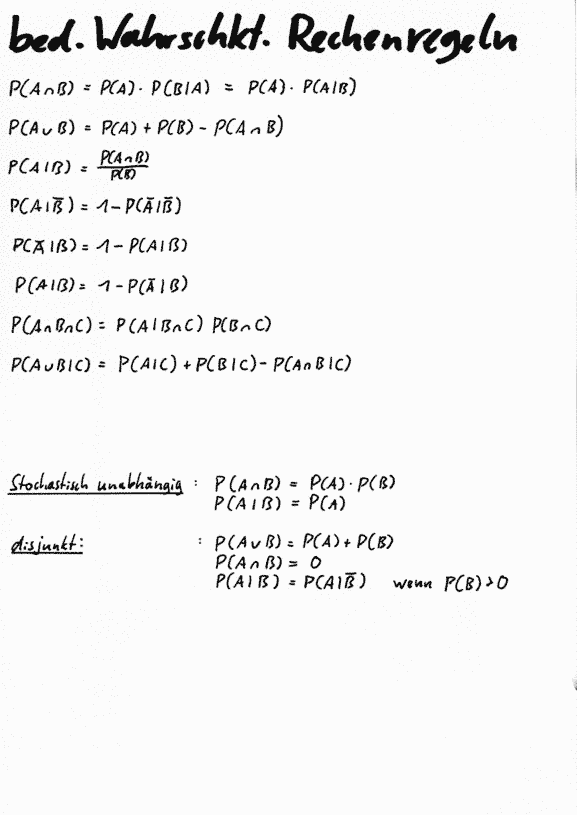 bed. Wahrschkt. Rechenregeln
P(A∩B) = P(A)· P(B|A) = P(A)· P(A|B)
P(A∪B) = P(A) + P(B) - P(A∩B)
P(A|B) = P(A∩B)/P(B)
P(A|B̅) = 1 - P(A̅|B̅)
P(A̅|B) = 1 - P(A|B)
P(A|B) = 1 - P(A̅|B)
P(A∩B∩C) = P(A|B∩C) P(B∩C)
P(A∪B|C) = P(A|C) + P(B|C) - P(A∩B|C)
Stochastisch unabhängig : P(A∩B) = P(A)·P(B)
P(A|B) = P(A)
disjunkt: : P(A∪B) = P(A) + P(B)
P(A∩B) = 0
P(A|B) = P(A|B̅) wenn P(B)>0